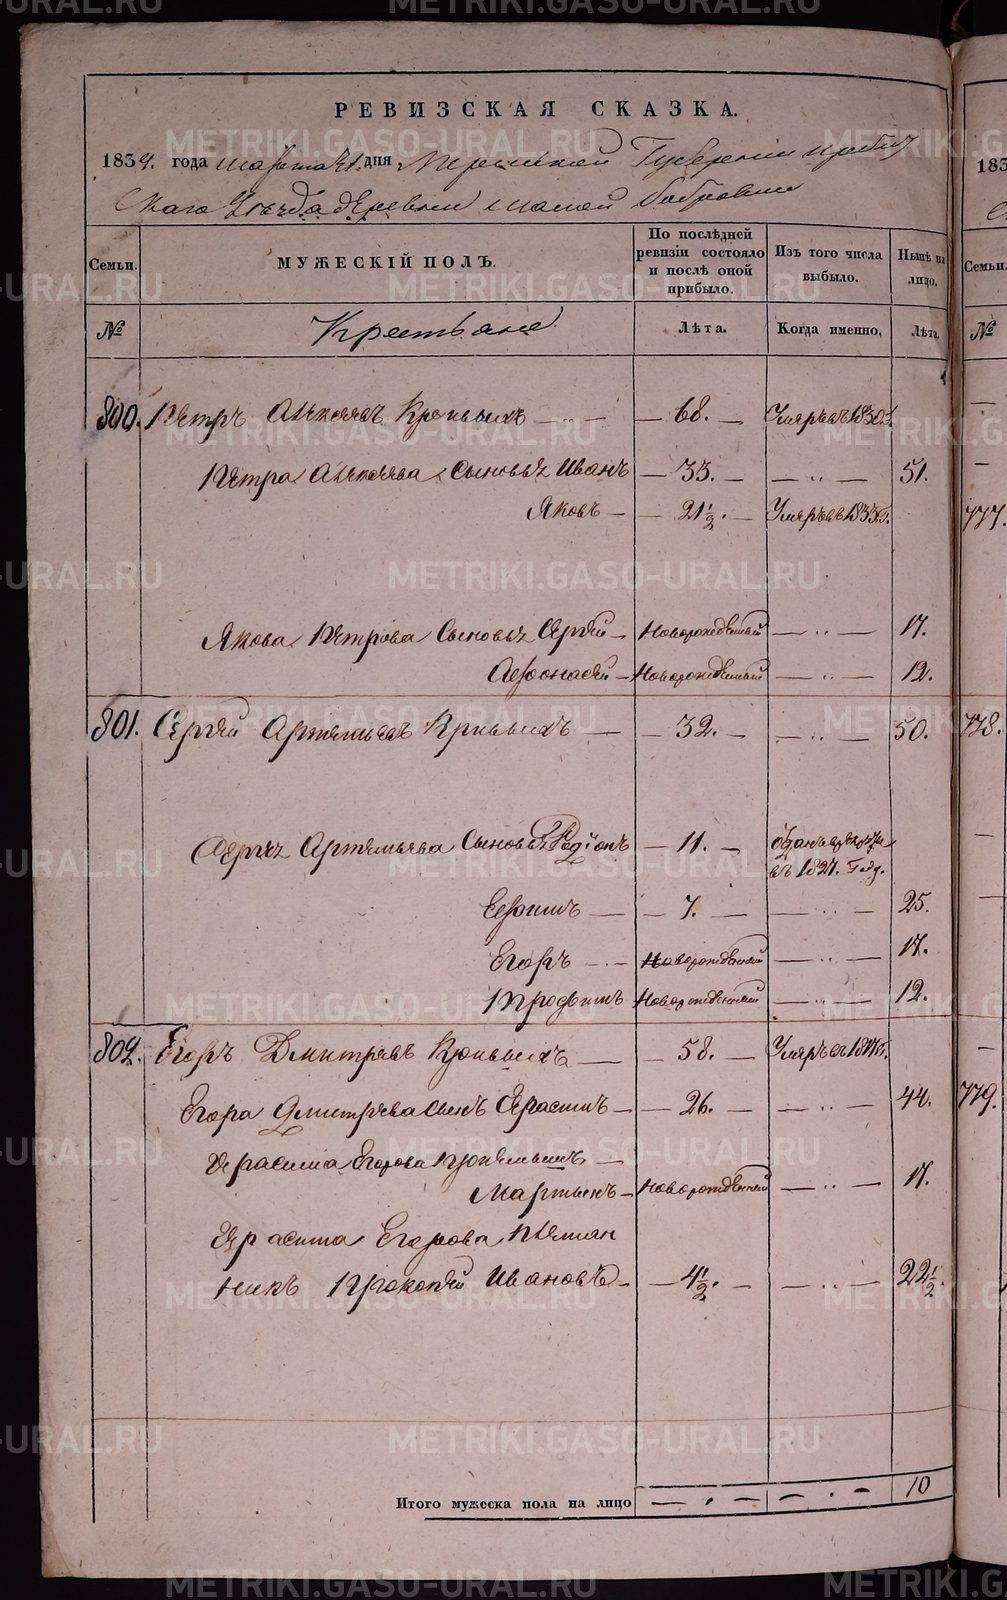 РЕВИЗСКАЯ СКАЗКА.
1834. года марта 1. дня Пермской Губернии Ирбит
скаго Уезда деревни малой Бобровки
Семьи. МУЖЕСКІЙ ПОЛЪ. По послѣдней ревизіи состояло и послѣ оной прибыло. Изъ того числа выбыло. Нынѣ на лицо. Семьи.
№ Крестьяне Лѣта. Когда именно. Лѣта. №
800. Петръ Алексеевъ Кривыхъ — 68. — Умеръ въ 1830 г.
Петра Алексеева Сыновья Иванъ — 33. — 51.
Яковъ — 21 1/2. — Умеръ въ 1833 г. 777.
Якова Петрова Сыновья Сергей — Новорожденный — 17.
Афонасей — Новорожденный — 12.
801. Сергей Артемьевъ Кривыхъ — 32. — 50. 778.
Сергея Артемьева Сыновья Родіонъ — 11. — отданъ в рекруты
въ 1827. году.
Ефимъ — 7. — 25.
Егоръ — Новорожденный — 17.
Трофимъ Новорожденный — 12.
802. Егоръ Дмитревъ Кривыхъ — 58. — Умеръ въ
Егора Дмитрева сынъ Герасимъ — 26. — 44. 779.
Герасима Егорова
Мартынъ — Новорожденный — 17.
Герасима Егорова племян
никъ Прокопей Ивановъ — 4 1/2. — 22 1/2.
Итого мужеска пола на лицо 10
METRIKI.GASO-URAL.RU